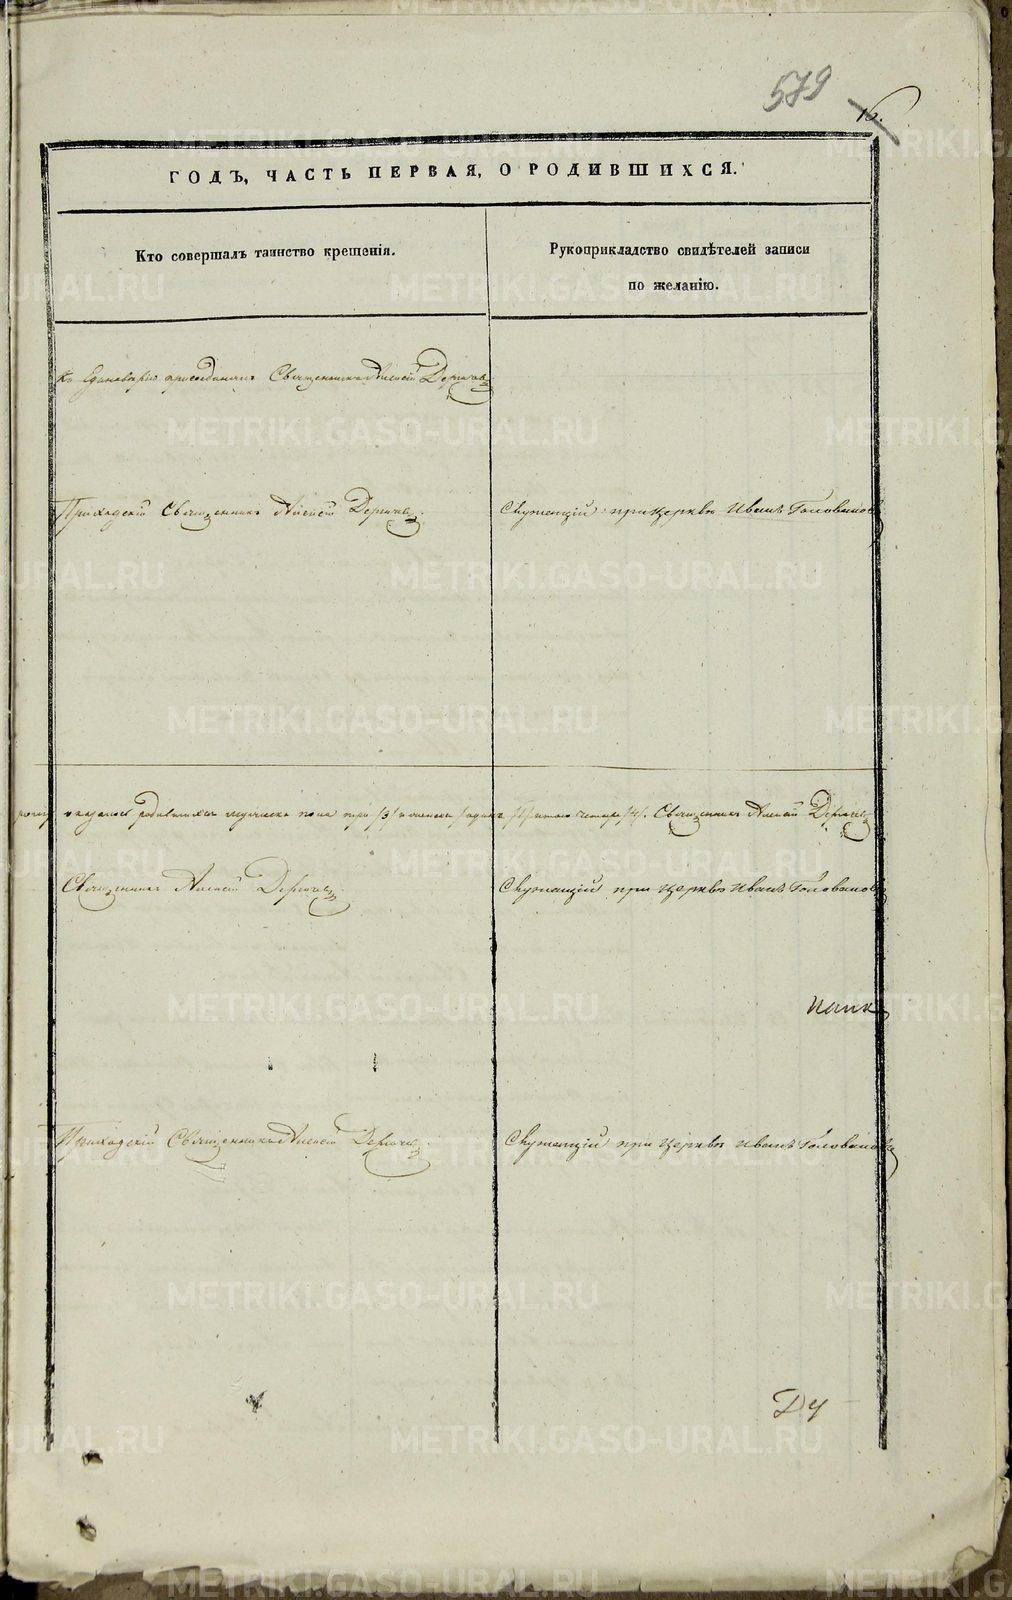 579
16.
ГОДЪ, ЧАСТЬ ПЕРВАЯ, О РОДИВШИХСЯ.
Кто совершалъ таинство крещенія.
Рукоприкладство свидѣтелей записи
по желанію.
Къ Единовѣрію присоединилъ Священникъ Алексій
Приходскій Священникъ Алексій
Служащій при Церквѣ Иванъ Головановъ
оказалось родившихся мужеска пола три /3/ и женска /одинъ /1/ итого четыре /4/. Священникъ Алексій
Священникъ Алексій
Служащій при Церквѣ Иванъ Головановъ
Приходскій Священникъ Алексій
Служащій при Церквѣ Иванъ Головановъ
METRIKI.GASO-URAL.RU